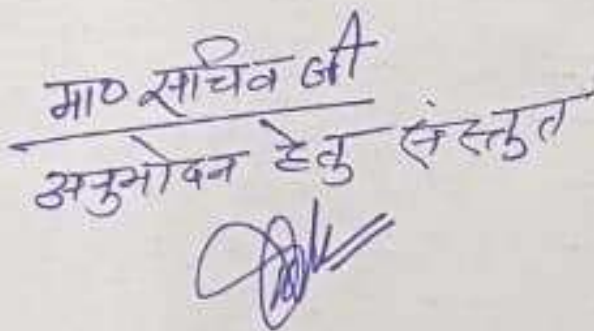 मा० सचिव जी
अनुमोदन हेतु संस्तुत